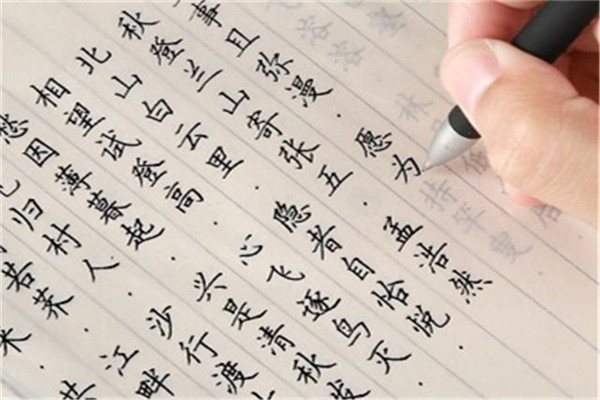 事且弥漫.愿为
秋登兰山寄张五.孟浩然
北山白云里.隐者自怡悦
相望试登高.心飞逐鸟灭
愁因薄暮起.兴是清秋发
归村人.沙行渡
若荠.江畔
来.共